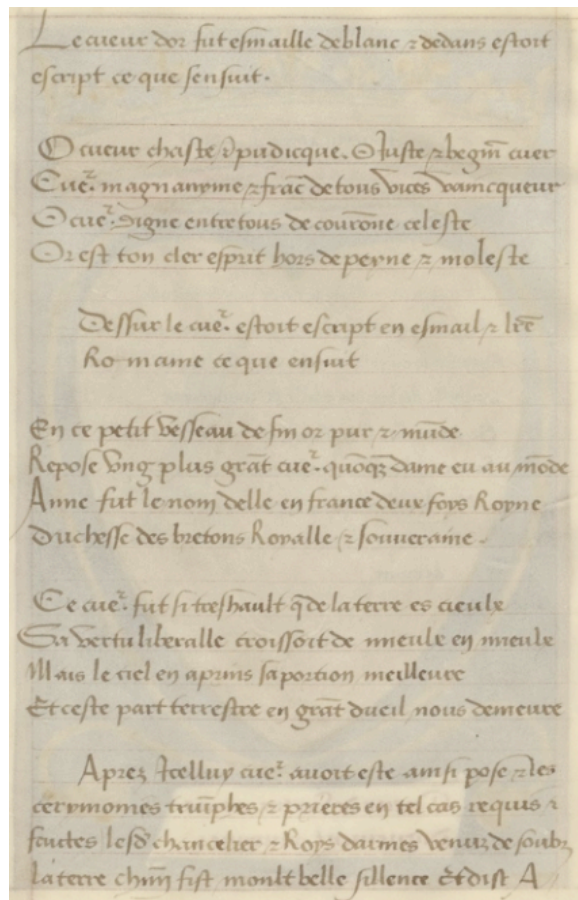 Le cueur dor fut esmaille de blanc ⁊ dedans estoit
escript ce que sensuit.
O cueur chaste ⁊ pudicque. O Juste ⁊ begnī cuer
Cueᷣ. magnanyme ⁊ frāc de tous vices vaincqueur
O cueᷣ. digne entre tous de courōne celeste
Or est ton cler esprit hors de peyne ⁊ moleste
Dessur le cueᷣ. estoit escript en esmail ⁊ lr̄ē
Romaine ce que ensuit
En ce petit vesseau de fin or pur ⁊ mūde
Repose ung plus grāt cueᷣ. quoncꝗ dame eu au mōde
Anne fut le nom delle en france deux foys Royne
Duchesse des bretons Royalle ⁊ souveraine.
Ce cueᷣ. fut si treshault q̄ de la terre es cieulx
Sa vertu liberalle croissoit de mieulx en mieulx
Mais le ciel en a prins sa portion meilleure
Et ceste part terrestre en grāt dueil nous demeure
Aprez Icelluy cueᷣ. avoit este ainsi pose ⁊ les
cerymonies triūphes ⁊ prieres en tel cas requis ⁊
faictes lesd̄ chancelier ⁊ Roys darmes venuz de soubz
la terre fist moult belle sillence Et dist A